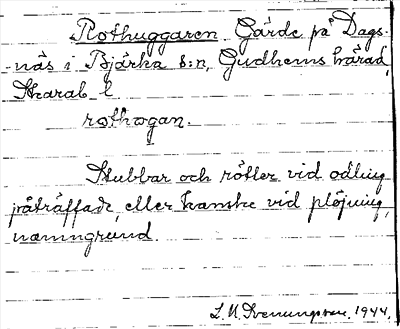 Rothuggaren. Gärde på Dags-
näs i Bjärka s:n, Gudhems härad,
Skarab. l.
rothogan.
Stubbar och rötter vid odling
påträffade, eller kanske vid plöjning,
namngrund.
L. M. Svenungsson, 1944.